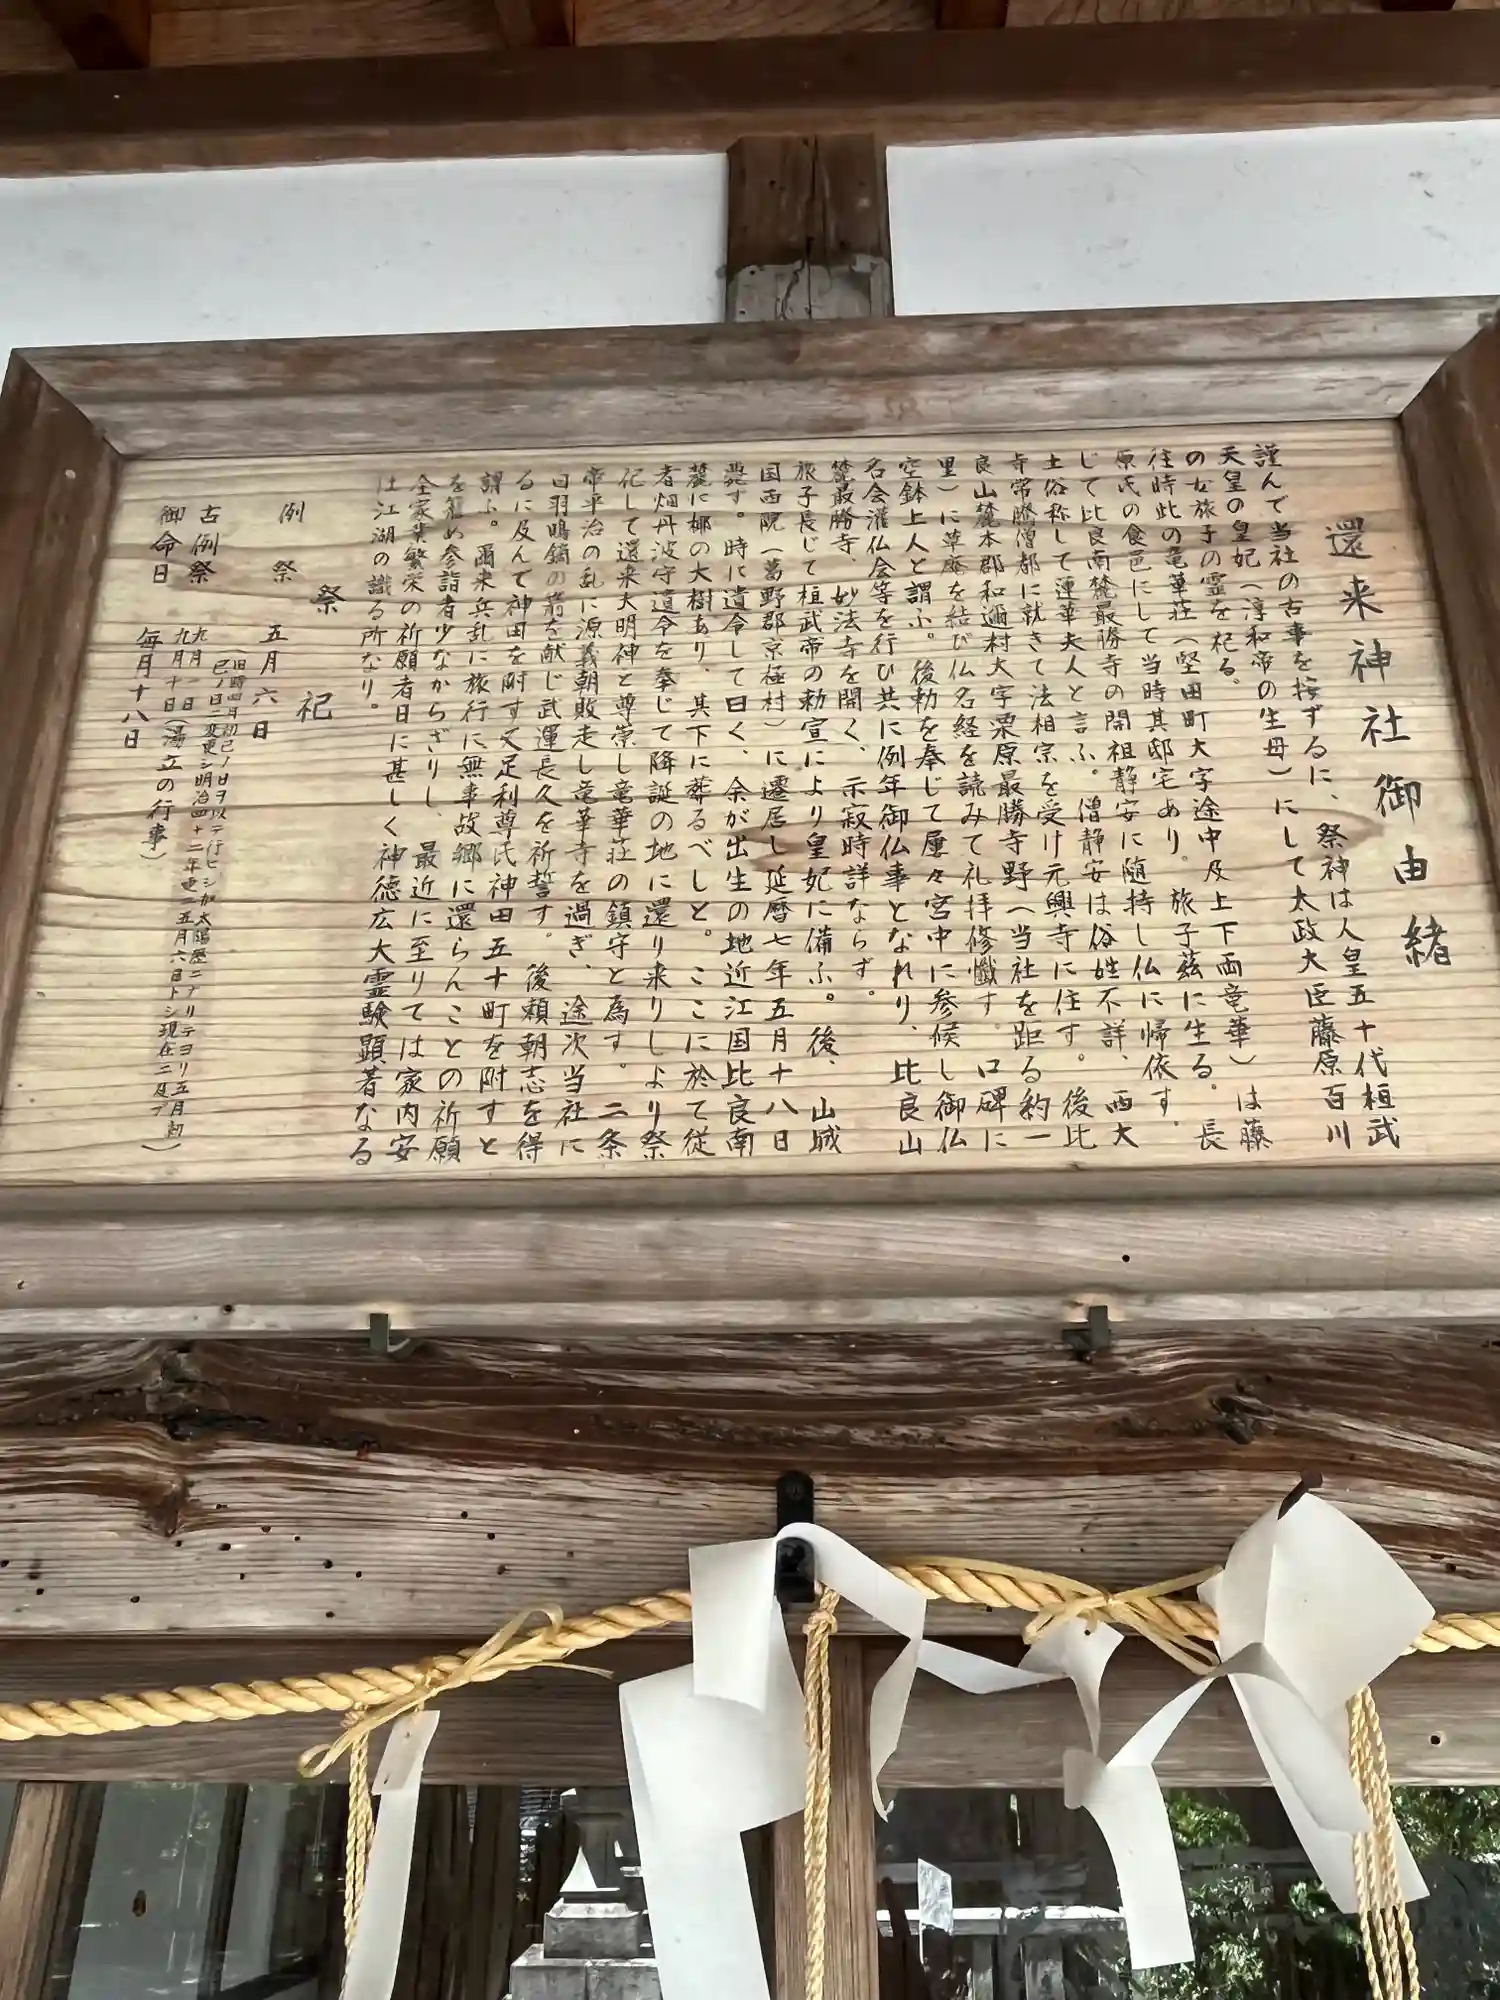 還来神社御由緒
謹んで当社の古事を按ずるに、祭神は人皇五十代桓武
天皇の皇妃（淳和帝の生母）にして太政大臣藤原百川
の女旅子の霊を祀る。
往時此の竜華荘（堅田町大字途中及上下両竜華）は藤
原氏の食邑にして当時其邸宅あり。旅子茲に生る。長
じて比良南麓最勝寺の開祖静安に随持し仏に帰依す。
土俗称して蓮華夫人と言ふ。僧静安は俗姓不詳、西大
寺常騰僧都に就きて法相宗を受け元興寺に住す。後比
良山麓木郡和邇村大字栗原最勝寺野（当社を距る約一
里）に草庵を結び仏名経を読みて礼拝修懺す。口碑に
空鉢上人と謂ふ。後勅を奉じて屢々宮中に参候し御仏
名会灌仏会等を行ひ共に例年御仏事となれり、比良山
麓最勝寺、妙法寺を開く、示寂時詳ならず。
旅子長じて桓武帝の勅宣により皇妃に備ふ。後、山城
国西院（葛野郡京極村）に遷居し延暦七年五月十八日
薨ず。時に遺令して曰く、余が出生の地近江国比良南
麓に梛の大樹あり、其下に葬るべしと。ここに於て従
者畑丹波守遺令を奉じて降誕の地に還り来りしより祭
祀して還来大明神と尊崇し竜華荘の鎮守と為す。二条
帝平治の乱に源義朝敗走し竜華寺を過ぎ、途次当社に
白羽鳴鏑の箭を献じ武運長久を祈誓す。後頼朝志を得
るに及んで神田を附す又足利尊氏神田五十町を附すと
謂ふ。爾来兵乱に旅行に無事故郷に還らんことの祈願
を籠め参詣者少なからざりし、最近に至りては家内安
全家業繁栄の祈願者日に甚しく神徳広大霊験顕著なる
は江湖の識る所なり。
祭祀
例祭 五月六日
（旧時四月初己ノ日ヲ以テ行ヒシガ太陽歴ニナリテヨリ五月初
己ノ日ニ変更シ明治四十二年更ニ五月六日トシ現在ニ及ブ）
古例祭 九月一日
九月十日（湯立の行事）
御命日 毎月十八日